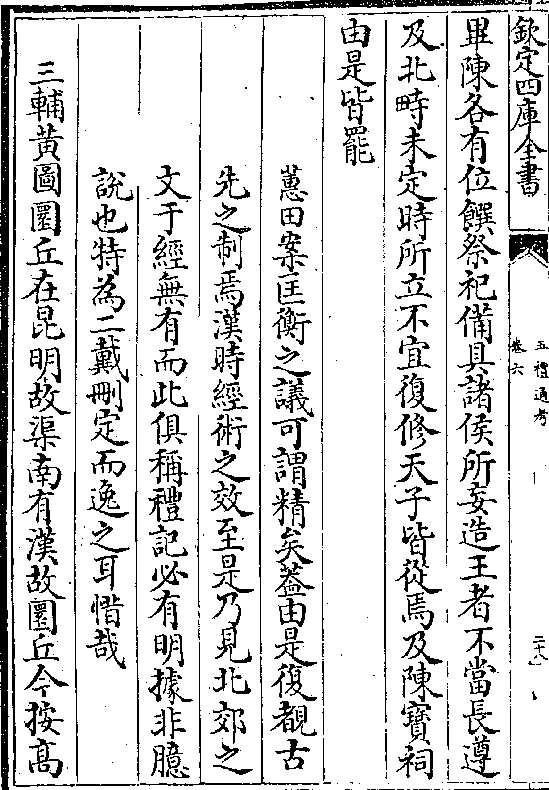 欽定四庫全書
五禮通考
卷六
二十八
畢陳各有位饌祭祀備具諸侯所妄造王者不當長遵
及北畤未定時所立不宜復修天子皆從焉及陳寶祠
由是皆罷
蕙田案匡衡之議可謂精矣蓋由是復覩古
先之制焉漢時經術之效至是乃見北郊之
文于經無有而此俱稱禮記必有明據非臆
說也特為二戴刪定而逸之耳惜哉
三輔黄圖圜丘在昆明故渠南有漢故圜丘今按高